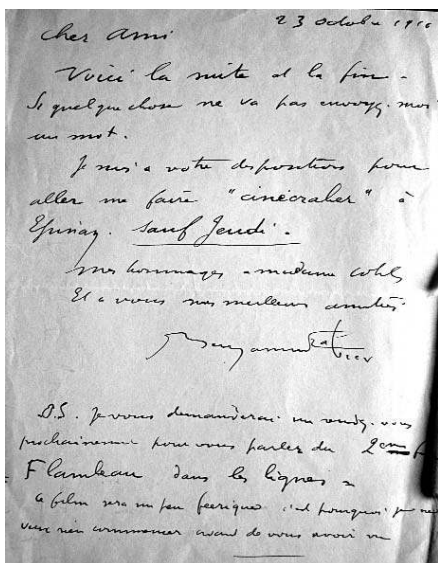 23 octobre 1916
Cher Ami
Voici la suite et la fin -
Si quelque chose ne va pas envoyez-moi
un mot.
Je suis a votre disposition pour
aller me faire "cinécraher" à
Epinay. Sauf Jeudi -
Mes hommages a madame Cohl
Et a vous mes meilleures amitiés
Benjamin Rabier
P.S. Je vous demanderai un rendez-vous
prochainement pour vous parler du 2eme
Flambeau dans les lignes
Ce film sera un peu féerique c'est pourquoi je ne
veux rien commencer avant de vous avoir vu